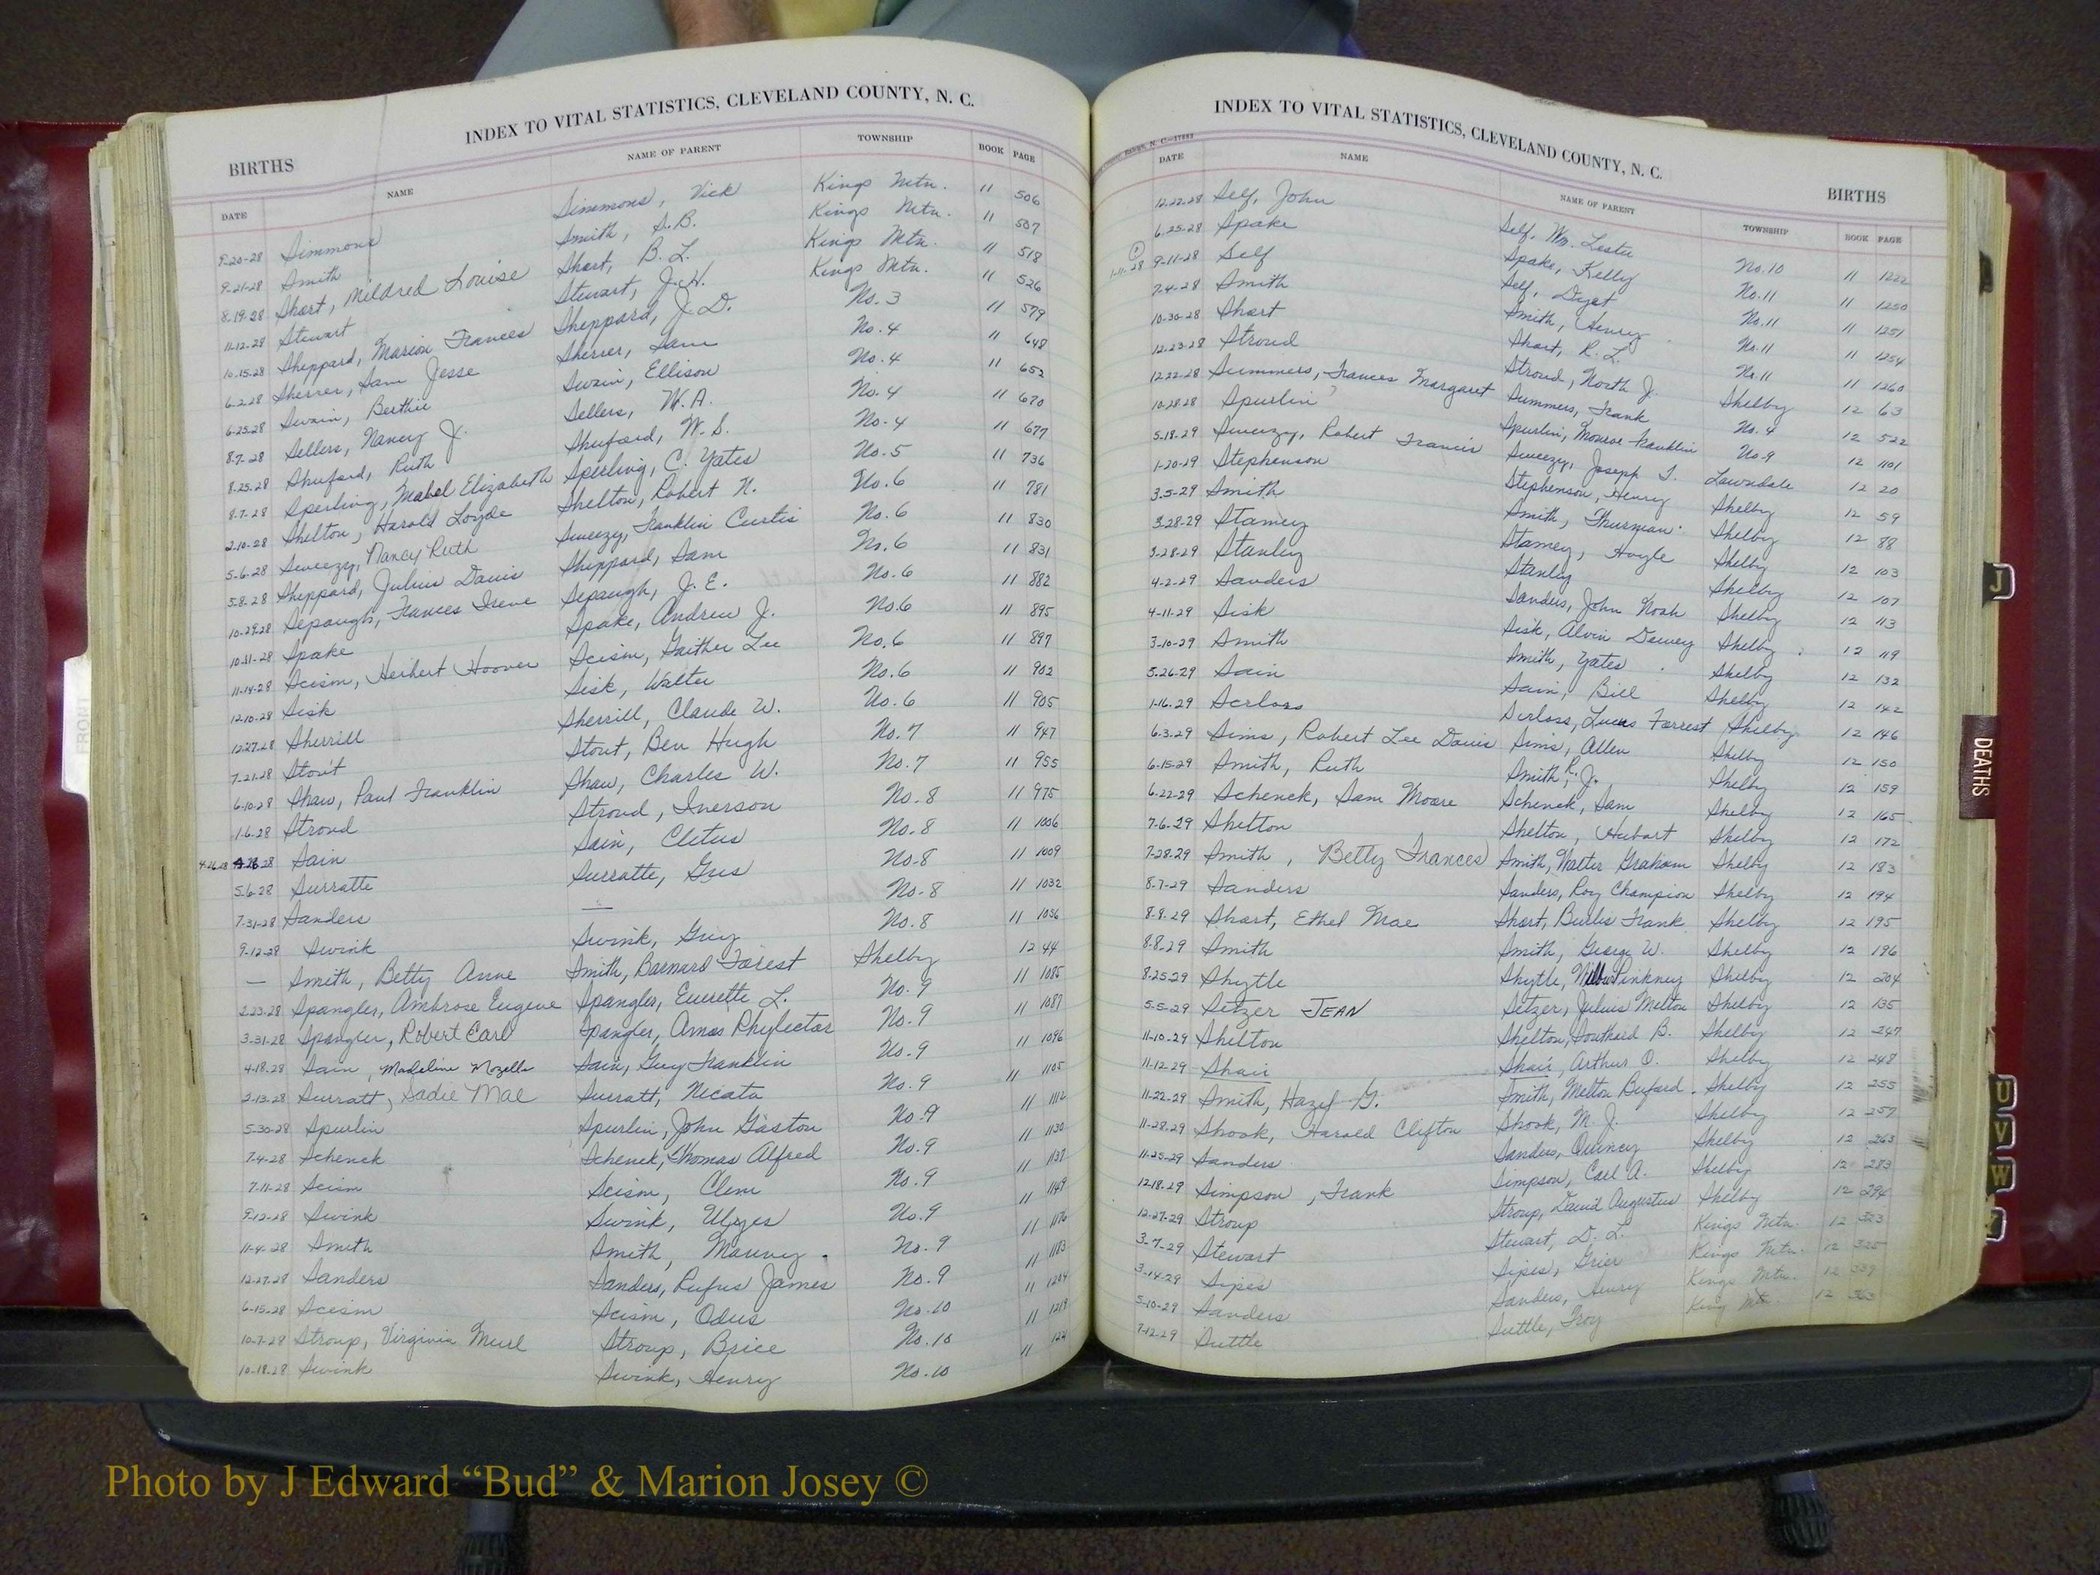 INDEX TO VITAL STATISTICS, CLEVELAND COUNTY, N. C.
BIRTHS
DATE NAME NAME OF PARENT TOWNSHIP BOOK PAGE
9-20-28 Simmons Simmons, Vick Kings Mtn. 11 506
9-21-28 Smith Smith, S.B. Kings Mtn. 11 507
8-19-28 Short, Mildred Louise Short, B. L. Kings Mtn. 11 518
11-12-28 Stewart Stewart, J.H. Kings Mtn. 11 526
10-15-28 Sheppard, Marion Frances Sheppard, J.D. No. 3 11 579
6-2-28 Sherrer, Sam Jesse Sherrer, Sam No. 4 11 648
6-25-28 Swain, Berthie Swain, Ellison No. 4 11 652
8-7-28 Sellers, Nancy J. Sellers, W.A. No. 4 11 670
8-25-28 Shuford, Ruth Shuford, W.S. No. 4 11 677
8-7-28 Sperling, Mabel Elizabeth Sperling, C. Yates No. 5 11 736
2-10-28 Shelton, Harold Loyde Shelton, Robert N. No. 6 11 781
5-6-28 Sweezy, Nancy Ruth Sweezy, Franklin Curtis No. 6 11 830
5-8-28 Sheppard, Julius Davis Sheppard, Sam No. 6 11 831
10-29-28 Sepaugh, Frances Irene Sepaugh, J.E. No. 6 11 882
10-11-28 Spake Spake, Andrew J. No. 6 11 895
11-14-28 Scism, Herbert Hoover Scism, Gaither Lee No. 6 11 897
12-10-28 Sisk Sisk, Walter No. 6 11 902
12-27-28 Sherrill Sherrill, Claude W. No. 6 11 905
7-21-28 Stout Stout, Ben Hugh No. 7 11 947
6-10-28 Shaw, Paul Franklin Shaw, Charles W. No. 7 11 955
1-6-28 Stroud Stroud, Inerson No. 8 11 975
4-26-28 Sain Sain, Cletus No. 8 11 1006
5-6-28 Surratte Surratte, Gus No. 8 11 1009
7-31-28 Sanders — No. 8 11 1032
9-12-28 Swink Swink, Guy No. 8 11 1036
— Smith, Betty Anne Smith, Barnard Forest Shelby 12 44
2-23-28 Spangler, Ambrose Eugene Spangler, Everette L. No. 9 11 1085
3-31-28 Spangler, Robert Earl Spangler, Amos Phylector No. 9 11 1087
4-18-28 Sain, Madeline Mozelle Sain, Guy Franklin No. 9 11 1096
2-13-28 Surratt, Sadie Mae Surratt, Necato No. 9 11 1105
5-30-28 Spurlin Spurlin, John Gaston No. 9 11 1112
7-4-28 Schenck Schenck, Thomas Alfred No. 9 11 1130
7-11-28 Scism Scism, Clem No. 9 11 1137
9-12-28 Swink Swink, Ulyes No. 9 11 1149
11-4-28 Smith Smith, Mauney No. 9 11 1176
12-27-28 Sanders Sanders, Rufus James No. 9 11 1183
6-15-28 Scism Scism, Odus No. 10 11 1204
10-7-28 Stroup, Virginia Merl Stroup, Brice No. 10 11 1219
10-18-28 Swink Swink, Henry No. 10 11
INDEX TO VITAL STATISTICS, CLEVELAND COUNTY, N. C.
BIRTHS
DATE NAME NAME OF PARENT TOWNSHIP BOOK PAGE
12-22-28 Self, John Self, Wm. Lester No. 10 11 1222
6-25-28 Spake Spake, Kelly No. 11 11 1250
1-11-28 9-11-28 Self Self, Dyat No. 11 11 1251
7-4-28 Smith Smith, Henry No. 11 11 1254
10-30-28 Short Short, R. L. No. 11 11 1260
12-23-28 Stroud Stroud, North J. Shelby 12 63
12-22-28 Summers, Frances Margaret Summers, Frank No. 4 12 522
10-28-28 Spurlin Spurlin, Monroe Franklin No. 9 12 1101
5-18-29 Sweezy, Robert Francis Sweezy, Joseph T. Lawndale 12 20
1-20-29 Stephenson Stephenson, Henry Shelby 12 59
3-5-29 Smith Smith, Thurman Shelby 12 88
3-28-29 Stamey Stamey, Hoyle Shelby 12 103
3-28-29 Stanley Stanley Shelby 12 107
4-2-29 Sanders Sanders, John Noah Shelby 12 113
4-11-29 Sisk Sisk, Alvin Dewey Shelby 12 119
3-10-29 Smith Smith, Yates Shelby 12 132
5-26-29 Sain Sain, Bill Shelby 12 142
1-16-29 Serloss Serloss, Lucas Forrest Shelby 12 146
6-3-29 Sims, Robert Lee Davis Sims, Allen Shelby 12 150
6-15-29 Smith, Ruth Smith, R. J. Shelby 12 159
6-22-29 Schenck, Sam Moore Schenck, Sam Shelby 12 165
7-6-29 Shelton Shelton, Hubart Shelby 12 172
7-28-29 Smith, Betty Frances Smith, Walter Graham Shelby 12 183
8-7-29 Sanders Sanders, Roy Champion Shelby 12 194
8-9-29 Short, Ethel Mae Short, Burlis Frank Shelby 12 195
8-8-29 Smith Smith, George W. Shelby 12 196
8-25-29 Shytle Shytle, Wilbur Pinkney Shelby 12 204
5-5-29 Setzer JEAN Setzer, Julius Melton Shelby 12 135
11-10-29 Shelton Shelton, Southard B. Shelby 12 247
11-12-29 Shair Shair, Arthur O. Shelby 12 248
11-22-29 Smith, Hazel G. Smith, Melton Buford Shelby 12 255
11-28-29 Shook, Harold Clifton Shook, M. J. Shelby 12 257
11-25-29 Sanders Sanders, Quincy Shelby 12 263
12-18-29 Simpson, Frank Simpson, Carl A. Shelby 12 283
12-27-29 Stroup Stroup, David Augustus Shelby 12 294
3-7-29 Stewart Stewart, D. L. Kings Mtn. 12 323
3-14-29 Sipes Sipes, Grier Kings Mtn. 12 325
5-10-29 Sanders Sanders, Henry Kings Mtn. 12 339
7-12-29 Suttle Suttle, Troy King Mtn. 12 363
FRONT
J
DEATHS
U
V
W
Photo by J Edward “Bud” & Marion Josey ©